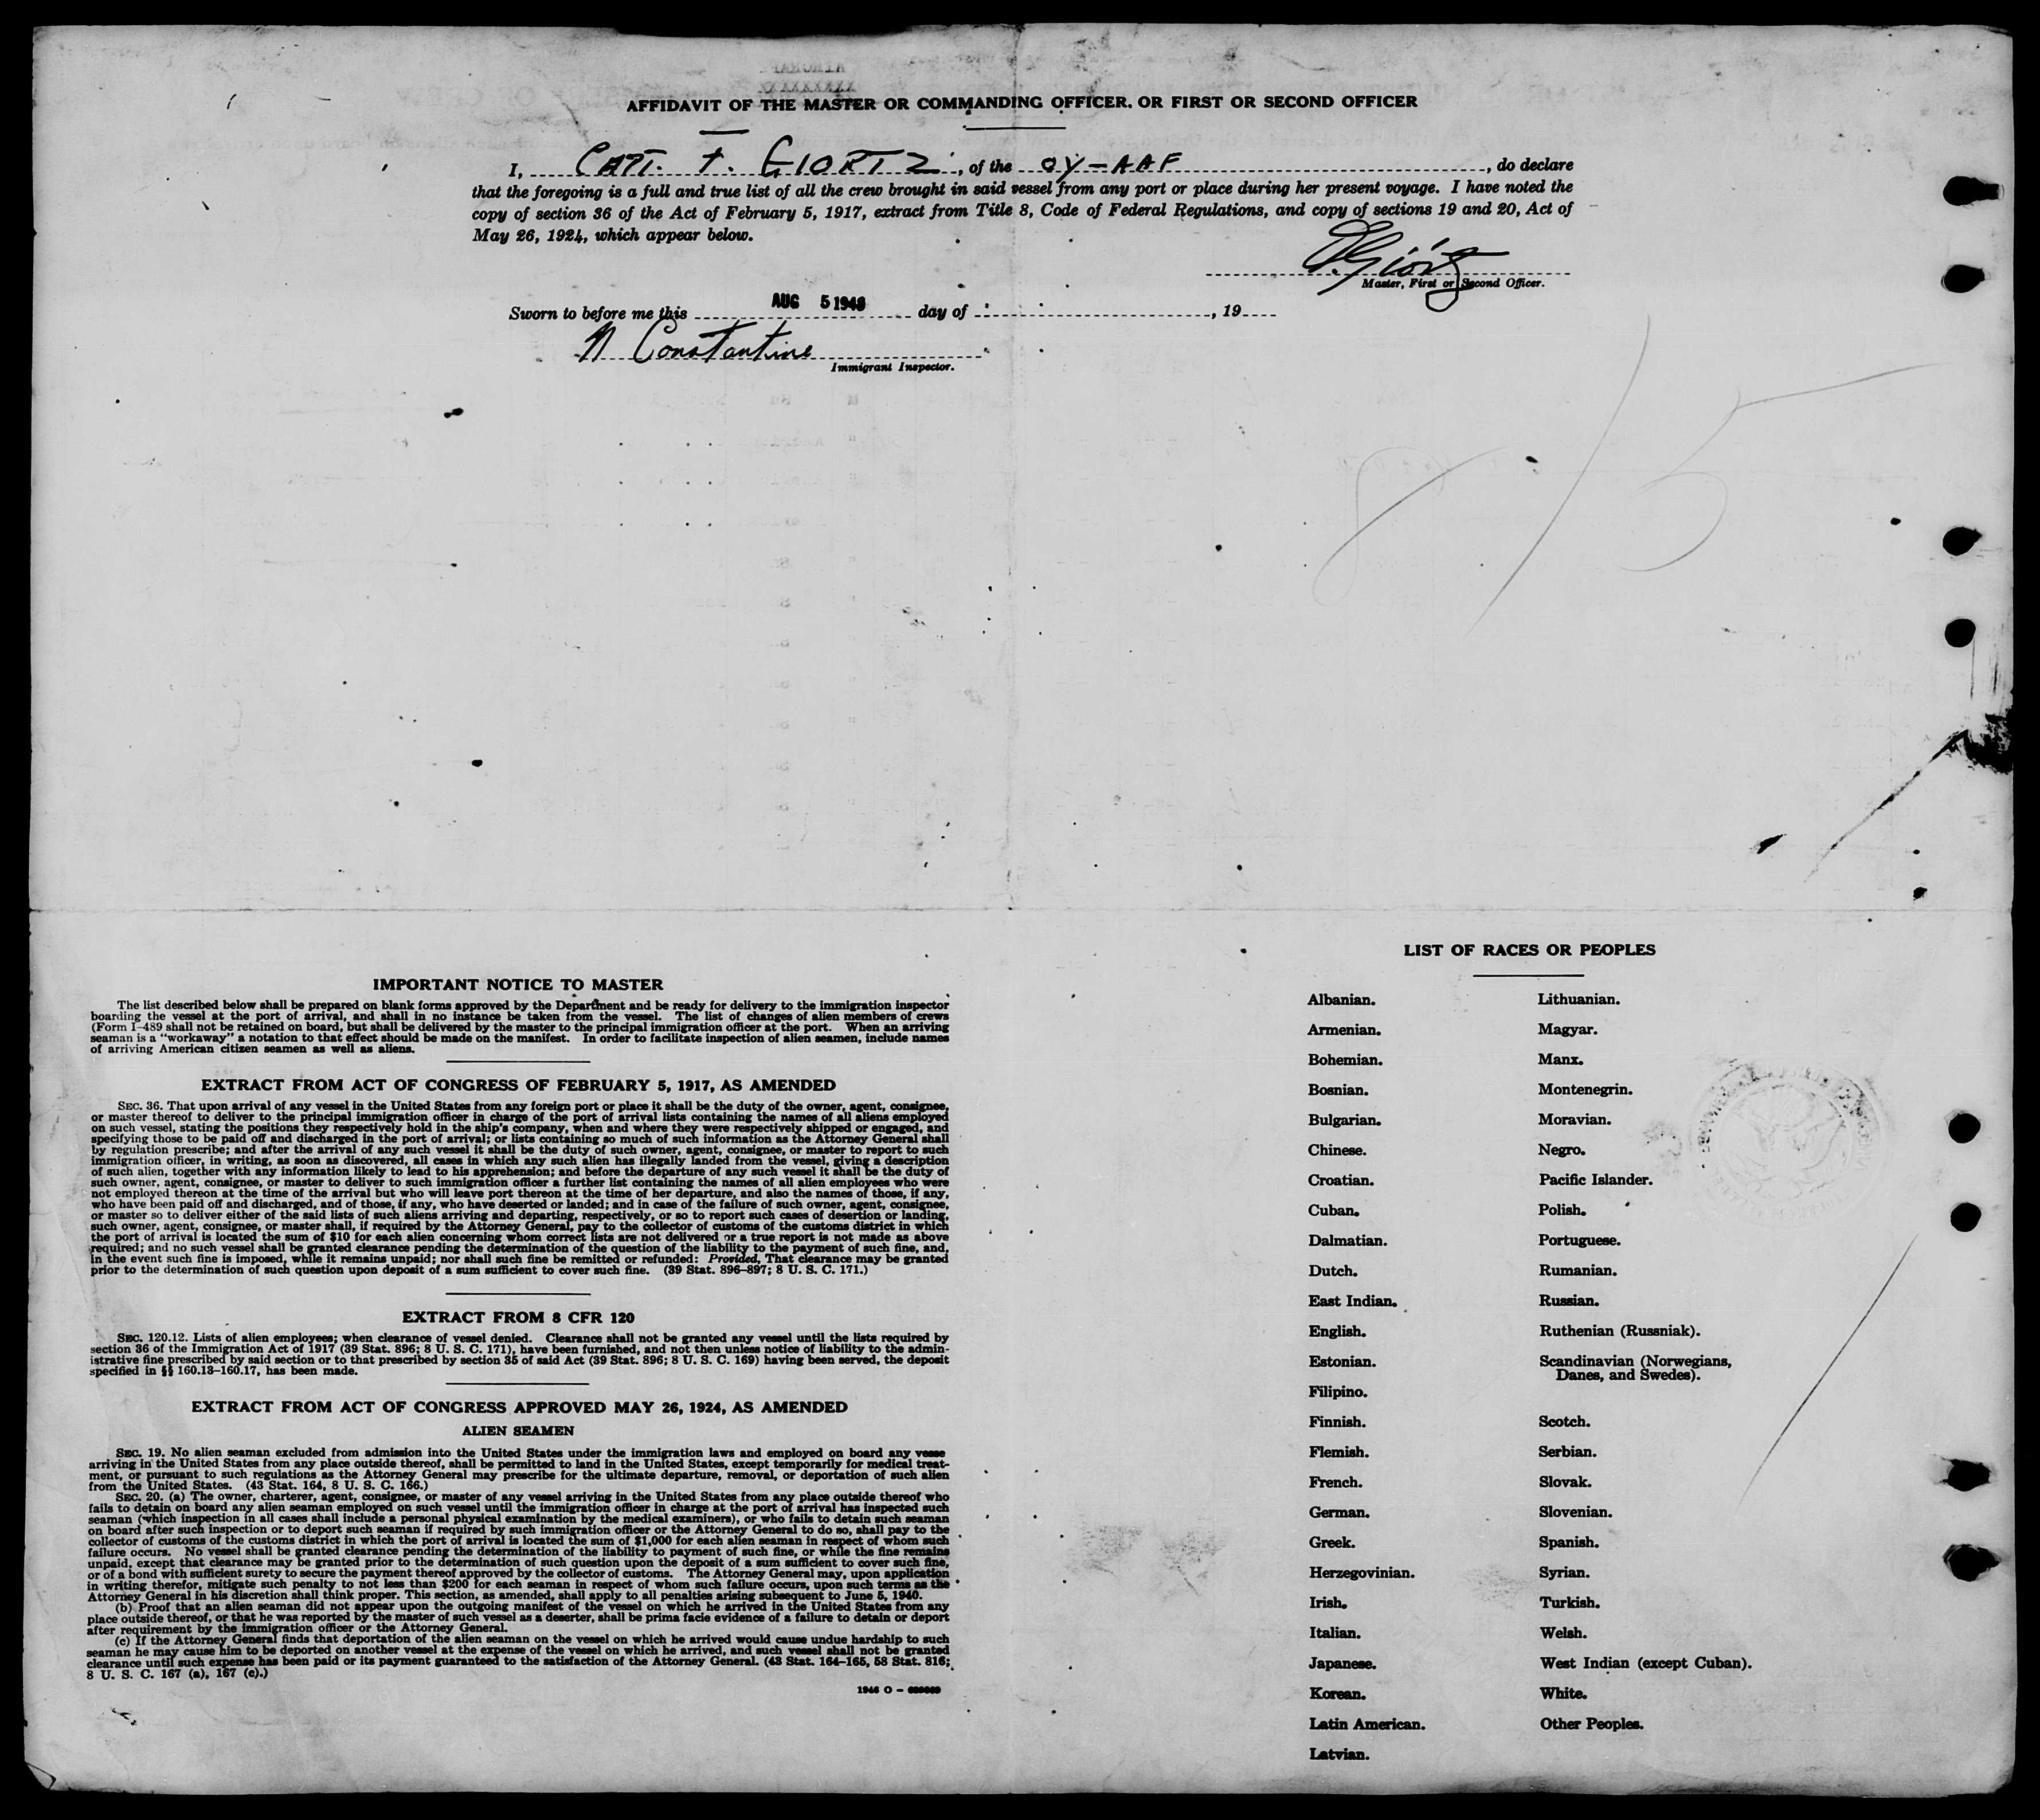 AFFIDAVIT OF THE MASTER OR COMMANDING OFFICER, OR FIRST OR SECOND OFFICER
I, CAPT. F. GIORTZ, of the OY-AAF, do declare
that the foregoing is a full and true list of all the crew brought in said vessel from any port or place during her present voyage. I have noted the
copy of section 36 of the Act of February 5, 1917, extract from Title 8, Code of Federal Regulations, and copy of sections 19 and 20, Act of
May 26, 1924, which appear below.
Master, First or Second Officer.
Sworn to before me this AUG 5 1948 day of , 19
N Constantine
Immigrant Inspector.
8/5
IMPORTANT NOTICE TO MASTER
The list described below shall be prepared on blank forms approved by the Department and be ready for delivery to the immigration inspector
boarding the vessel at the port of arrival, and shall in no instance be taken from the vessel. The list of changes of alien members of crews
(Form I-489 shall not be retained on board, but shall be delivered by the master to the principal immigration officer at the port. When an arriving
seaman is a "workaway" a notation to that effect should be made on the manifest. In order to facilitate inspection of alien seamen, include names
of arriving American citizen seamen as well as aliens.
EXTRACT FROM ACT OF CONGRESS OF FEBRUARY 5, 1917, AS AMENDED
SEC. 36. That upon arrival of any vessel in the United States from any foreign port or place it shall be the duty of the owner, agent, consignee,
or master thereof to deliver to the principal immigration officer in charge of the port of arrival lists containing the names of all aliens employed
on such vessel, stating the positions they respectively hold in the ship's company, when and where they were respectively shipped or engaged, and
specifying those to be paid off and discharged in the port of arrival; or lists containing so much of such information as the Attorney General shall
by regulation prescribe; and after the arrival of any such vessel it shall be the duty of such owner, agent, consignee, or master to report to such
immigration officer, in writing, as soon as discovered, all cases in which any such alien has illegally landed from the vessel, giving a description
of such alien, together with any information likely to lead to his apprehension; and before the departure of any such vessel it shall be the duty of
such owner, agent, consignee, or master to deliver to such immigration officer a further list containing the names of all alien employees who were
not employed thereon at the time of the arrival but who will leave port thereon at the time of her departure, and also the names of those, if any,
who have been paid off and discharged, and of those, if any, who have deserted or landed; and in case of the failure of such owner, agent, consignee,
or master so to deliver either of the said lists of such aliens arriving and departing, respectively, or so to report such cases of desertion or landing,
such owner, agent, consignee, or master shall, if required by the Attorney General, pay to the collector of customs of the customs district in which
the port of arrival is located the sum of $10 for each alien concerning whom correct lists are not delivered or a true report is not made as above
required; and no such vessel shall be granted clearance pending the determination of the question of the liability to the payment of such fine, and,
in the event such fine is imposed, while it remains unpaid; nor shall such fine be remitted or refunded: Provided, That clearance may be granted
prior to the determination of such question upon deposit of a sum sufficient to cover such fine. (39 Stat. 896–897; 8 U. S. C. 171.)
EXTRACT FROM 8 CFR 120
SEC. 120.12. Lists of alien employees; when clearance of vessel denied. Clearance shall not be granted any vessel until the lists required by
section 36 of the Immigration Act of 1917 (39 Stat. 896; 8 U. S. C. 171), have been furnished, and not then unless notice of liability to the admin-
istrative fine prescribed by said section or to that prescribed by section 35 of said Act (39 Stat. 896; 8 U. S. C. 169) having been served, the deposit
specified in §§ 160.13–160.17, has been made.
EXTRACT FROM ACT OF CONGRESS APPROVED MAY 26, 1924, AS AMENDED
ALIEN SEAMEN
SEC. 19. No alien seaman excluded from admission into the United States under the immigration laws and employed on board any vesse
arriving in the United States from any place outside thereof, shall be permitted to land in the United States, except temporarily for medical treat-
ment, or pursuant to such regulations as the Attorney General may prescribe for the ultimate departure, removal, or deportation of such alien
from the United States. (43 Stat. 164, 8 U. S. C. 166.)
SEC. 20. (a) The owner, charterer, agent, consignee, or master of any vessel arriving in the United States from any place outside thereof who
fails to detain on board any alien seaman employed on such vessel until the immigration officer in charge at the port of arrival has inspected such
seaman (which inspection in all cases shall include a personal physical examination by the medical examiners), or who fails to detain such seaman
on board after such inspection or to deport such seaman if required by such immigration officer or the Attorney General to do so, shall pay to the
collector of customs of the customs district in which the port of arrival is located the sum of $1,000 for each alien seaman in respect of whom such
failure occurs. No vessel shall be granted clearance pending the determination of the liability to payment of such fine, or while the fine remains
unpaid, except that clearance may be granted prior to the determination of such question upon the deposit of a sum sufficient to cover such fine,
or of a bond with sufficient surety to secure the payment thereof approved by the collector of customs. The Attorney General may, upon application
in writing therefor, mitigate such penalty to not less than $200 for each seaman in respect of whom such failure occurs, upon such terms as the
Attorney General in his discretion shall think proper. This section, as amended, shall apply to all penalties arising subsequent to June 5, 1940.
(b) Proof that an alien seaman did not appear upon the outgoing manifest of the vessel on which he arrived in the United States from any
place outside thereof, or that he was reported by the master of such vessel as a deserter, shall be prima facie evidence of a failure to detain or deport
after requirement by the immigration officer or the Attorney General.
(c) If the Attorney General finds that deportation of the alien seaman on the vessel on which he arrived would cause undue hardship to such
seaman he may cause him to be deported on another vessel at the expense of the vessel on which he arrived, and such vessel shall not be granted
clearance until such expense has been paid or its payment guaranteed to the satisfaction of the Attorney General. (43 Stat. 164–165, 58 Stat. 816;
8 U. S. C. 167 (a), 167 (c).)
1946 O –
LIST OF RACES OR PEOPLES
Albanian.
Armenian.
Bohemian.
Bosnian.
Bulgarian.
Chinese.
Croatian.
Cuban.
Dalmatian.
Dutch.
East Indian.
English.
Estonian.
Filipino.
Finnish.
Flemish.
French.
German.
Greek.
Herzegovinian.
Irish.
Italian.
Japanese.
Korean.
Latin American.
Latvian.
Lithuanian.
Magyar.
Manx.
Montenegrin.
Moravian.
Negro.
Pacific Islander.
Polish.
Portuguese.
Rumanian.
Russian.
Ruthenian (Russniak).
Scandinavian (Norwegians,
Danes, and Swedes).
Scotch.
Serbian.
Slovak.
Slovenian.
Spanish.
Syrian.
Turkish.
Welsh.
West Indian (except Cuban).
White.
Other Peoples.